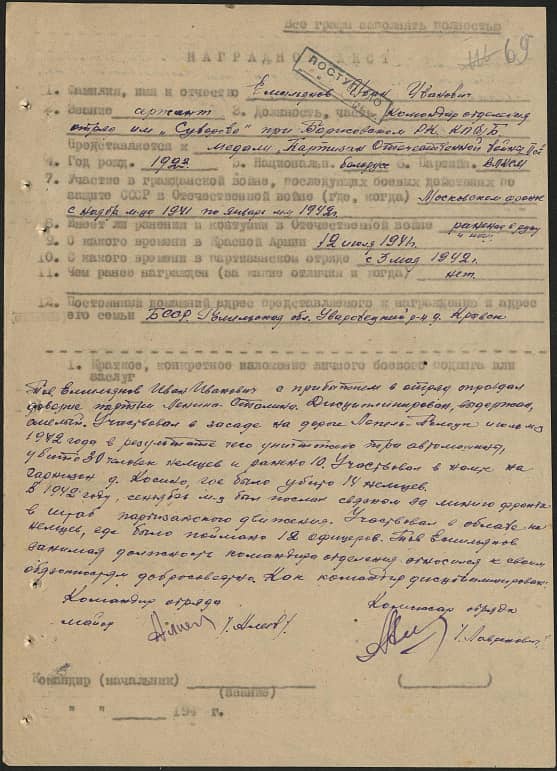 Все графы заполнять полностью
69
НАГРАДНОЙ ЛИСТ
ПОСТУПИЛО
1. Фамилия, имя и отчество Емельянов Иван Иванович
2. Звание сержант 3. Должность, часть Командир отделения
отряд им "Суворова" при Борисовском РК КП/б/Б
Представляется к медали "Партизан Отечественной Войны"
4. Год рожд. 1922 5. Национальн. белорус 6. Партийн. ВЛКСМ
7. Участие в гражданской войне, последующих боевых действиях по
защите СССР и Отечественной войне (где, когда) Московском фронте
с ноября м-ца 1941 по январь м-ц 1942 г.
8. Имеет ли ранения и контузии в Отечественной войне ранен в руку
и ногу
9. С какого времени в Красной Армии 12 июля 1941 г.
10. С какого времени в партизанском отряде с 3 мая 1942 г.
11. Чем ранее награжден (за какие отличия и когда) нет.
14. Постоянный домашний адрес представляемого к награждению и адрес
его семьи БССР, Гомельская обл. Уваровичский р-н д.
1. Краткое, конкретное изложение личного боевого подвига или
заслуг
Тов Емельянов Иван Иванович с прибытием в отряд оправдал
доверие партии Ленина-Сталина. Дисциплинирован, выдержан,
смелый. Участвовал в засаде на дороге Лепель- июле м-ц
1942 года в результате чего уничтожено три автомашины,
убито 30 человек немцев и ранено 10. Участвовал в на
гарнизон д. Косино, где было убито 14 немцев.
В 1942 году, сентябрь м-ц был послан связным за линию фронта
в штаб партизанского движения. Участвовал в облаве на
немцев, где было поймано 12 офицеров. Тов Емельянов
занимая должность командира отделения относился к своим
обязанностям добросовестно. Как командир дисциплинирован.
Командир отряда Комиссар отряда
майор
Командир (начальник)
(звание)
" " 194 г.